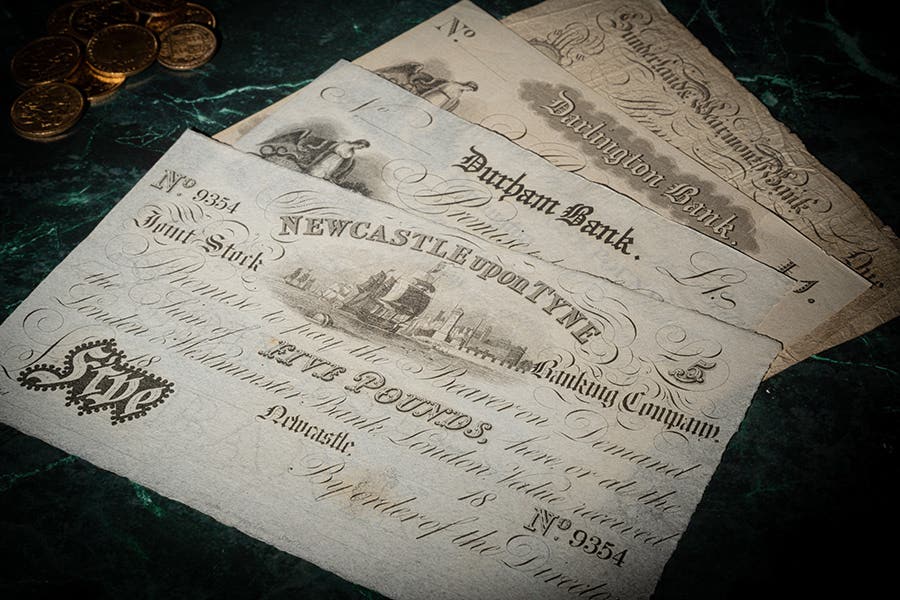 Nº 9354
NEWCASTLE UPON TYNE
Joint Stock Banking Company.
£5
I Promise to pay the Bearer on Demand
FIVE POUNDS, here, or at the
London & Westminster Bank London Value received
the Sum of
Newcastle. 18
Five
Nº 9354
By order of the Director
Nº
Durham Bank.
Promise
Nº
Darlington Bank.
Sunderland & Wearmouth Bank